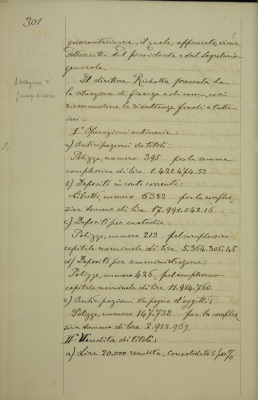 301
quarantacinque, il quale, approvato, viene
sottoscritto dal presidente e dal segretario
generale.
Situazione di
finanza e
Il direttore presenta la
situazione di finanza e di così
riassumendone le risultanze finali a tutt'
ieri:
I° Operazioni ordinarie:
a) Anticipazioni su titoli:
Polizze, numero 395 per la somma
complessiva di lire 1.421.474.53
b) Depositi in conto corrente:
Libretti, numero 6382 per la comples
siva somma di lire 17.991.042.16
c) Depositi per custodia:
Polizze, numero 213 pel complessivo
capitale nominale di lire 5.364.305.45
d) Depositi per amministrazione:
Polizze, numero 426, pel complessivo
capitale nominale di lire 11.914.760.
e) Anticipazioni su pegno d'oggetti:
Polizze, numero 147.738 per la comples
siva somma di lire 2.918.969.
II° Vendita di titoli:
a) Lire 20.000 rendita, consolidato 5 per %